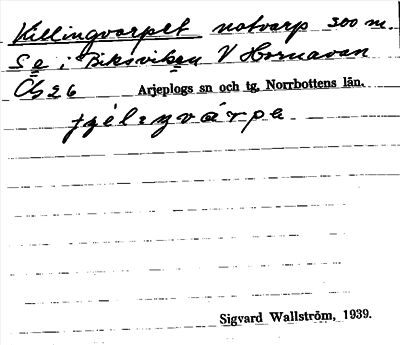 Killingvarpet notvarp 300 m.
S e i Biksviken V Hornavan
Ög 26 Arjeplogs sn och tg, Norrbottens län.
Sigvard Wallström, 1939.